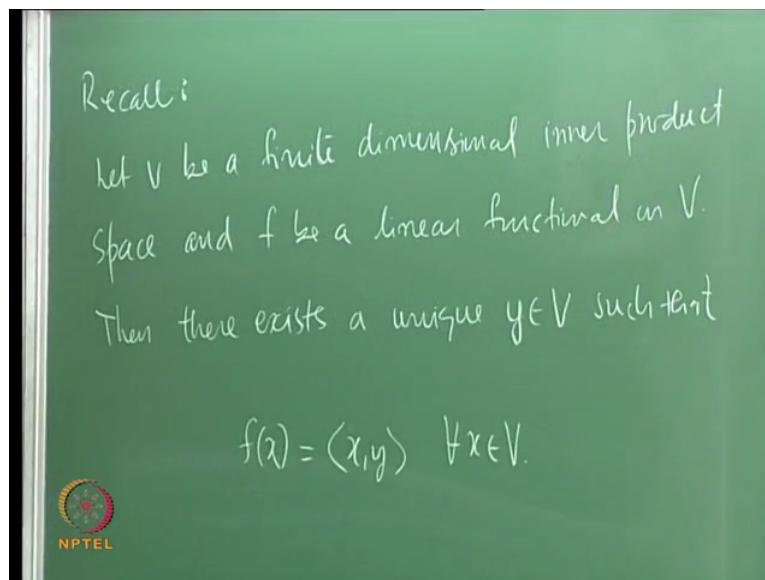 Recall:
Let V be a finite dimensional inner product
space and f be a linear functional on V.
Then there exists a unique y ∈ V such that
f(x) = ⟨x, y⟩ ∀ x ∈ V.
NPTEL